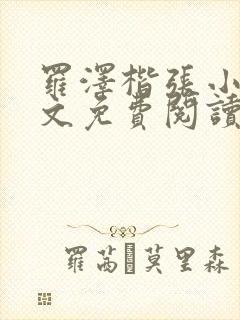 羅澤楷張小
文免費閱讀
羅茜·莫里森